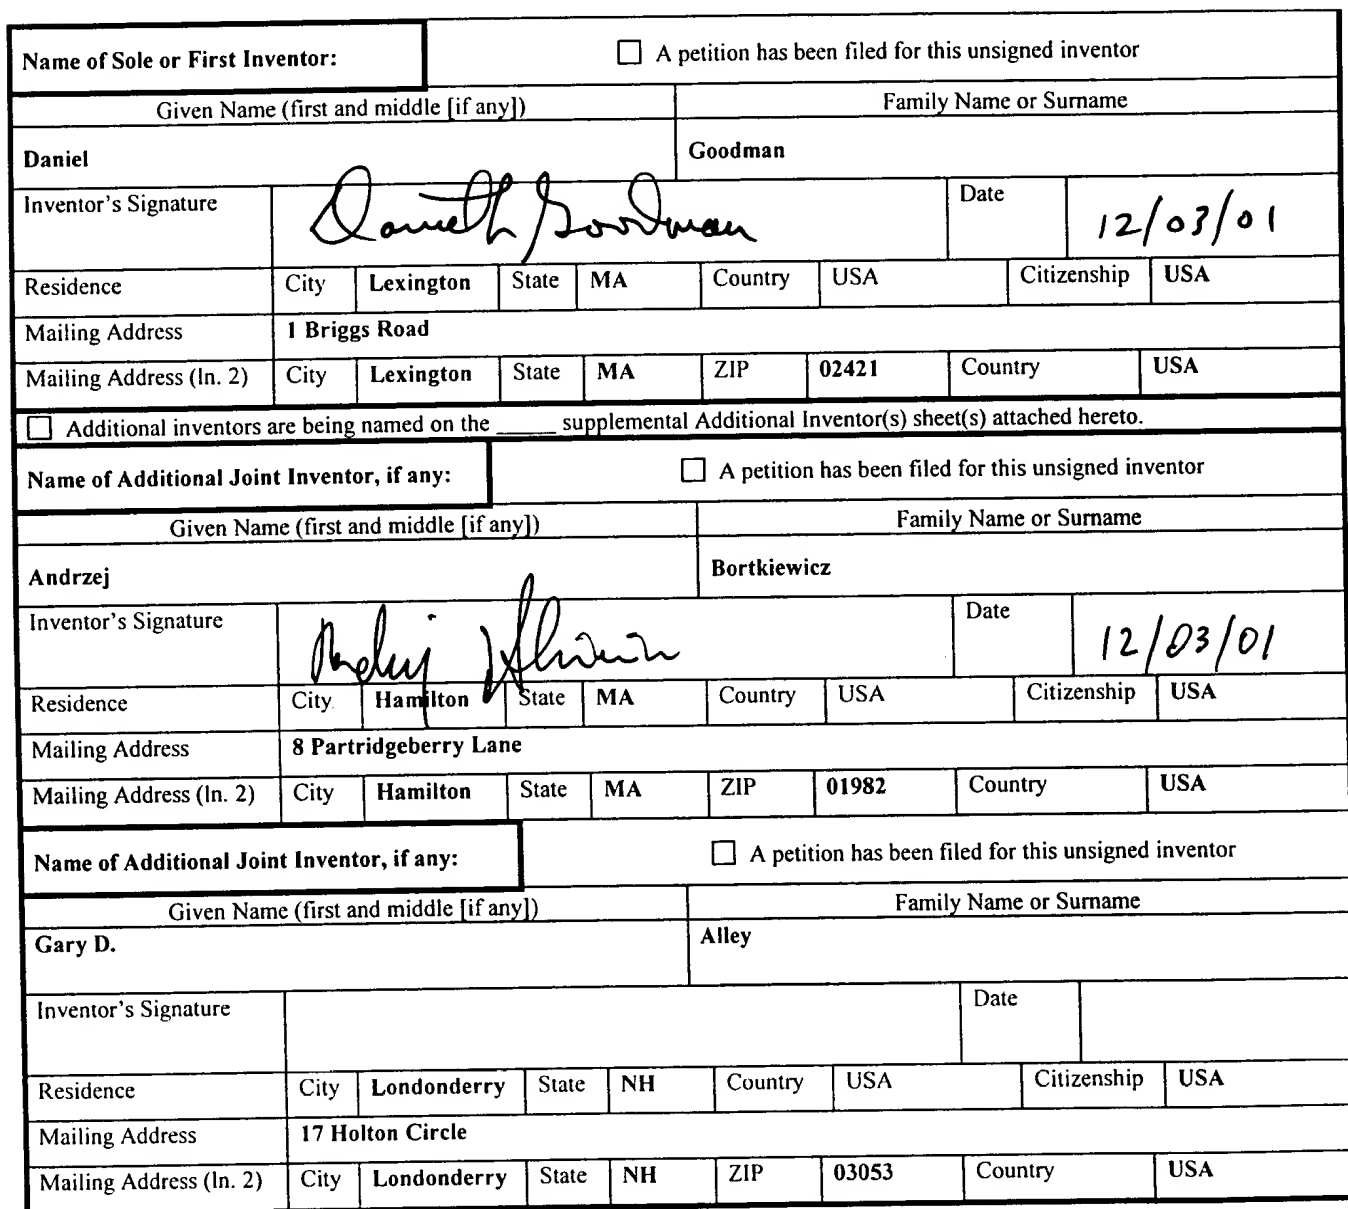 Name of Sole or First Inventor: ☐ A petition has been filed for this unsigned inventor
Given Name (first and middle [if any]) Family Name or Surname
Daniel Goodman
Inventor's Signature Daniel Goodman Date 12/03/01
Residence City Lexington State MA Country USA Citizenship USA
Mailing Address 1 Briggs Road
Mailing Address (ln. 2) City Lexington State MA ZIP 02421 Country USA
☐ Additional inventors are being named on the _____ supplemental Additional Inventor(s) sheet(s) attached hereto.
Name of Additional Joint Inventor, if any: ☐ A petition has been filed for this unsigned inventor
Given Name (first and middle [if any]) Family Name or Surname
Andrzej Bortkiewicz
Inventor's Signature Date 12/03/01
Residence City Hamilton State MA Country USA Citizenship USA
Mailing Address 8 Partridgeberry Lane
Mailing Address (ln. 2) City Hamilton State MA ZIP 01982 Country USA
Name of Additional Joint Inventor, if any: ☐ A petition has been filed for this unsigned inventor
Given Name (first and middle [if any]) Family Name or Surname
Gary D. Alley
Inventor's Signature Date
Residence City Londonderry State NH Country USA Citizenship USA
Mailing Address 17 Holton Circle
Mailing Address (ln. 2) City Londonderry State NH ZIP 03053 Country USA